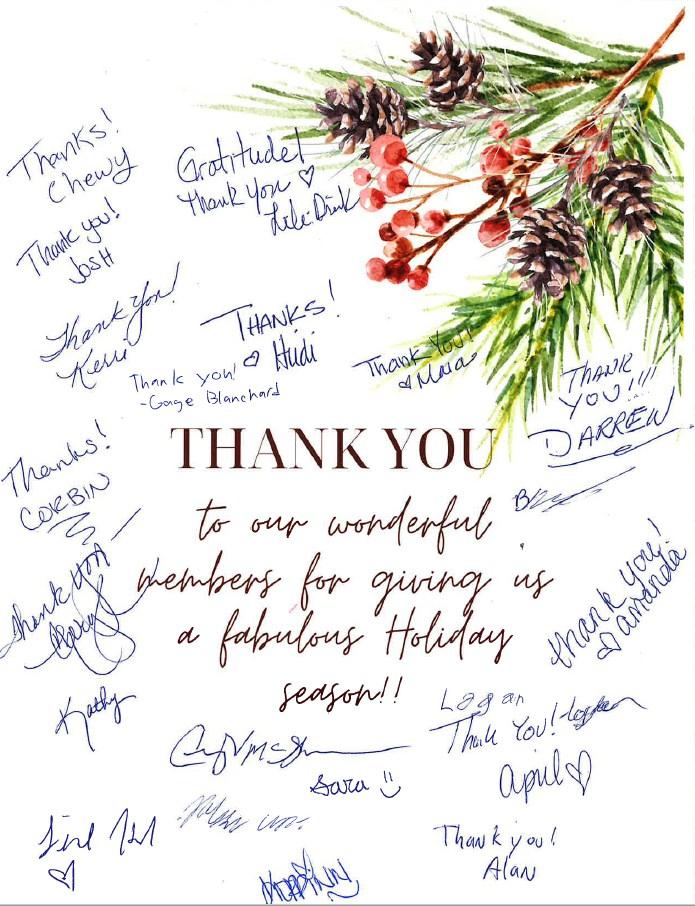 Thanks!
Chewy
Gratitude!
Thank you ♡
Thank you!
JOSH
Thank you!
Kerri
THANKS!
♡
Thank you!
-Gage Blanchard
THANK YOU!
♡ Maia
THANK
YOU!!!!
DARREN
Thanks!
CORBIN
THANK YOU
to our wonderful
members for giving us
a fabulous Holiday
season!!
Thank you
thank you!
♡ amanda
Kathy
Logan
Thank You!
Sara
April ♡
♡
Thank you!
Alan